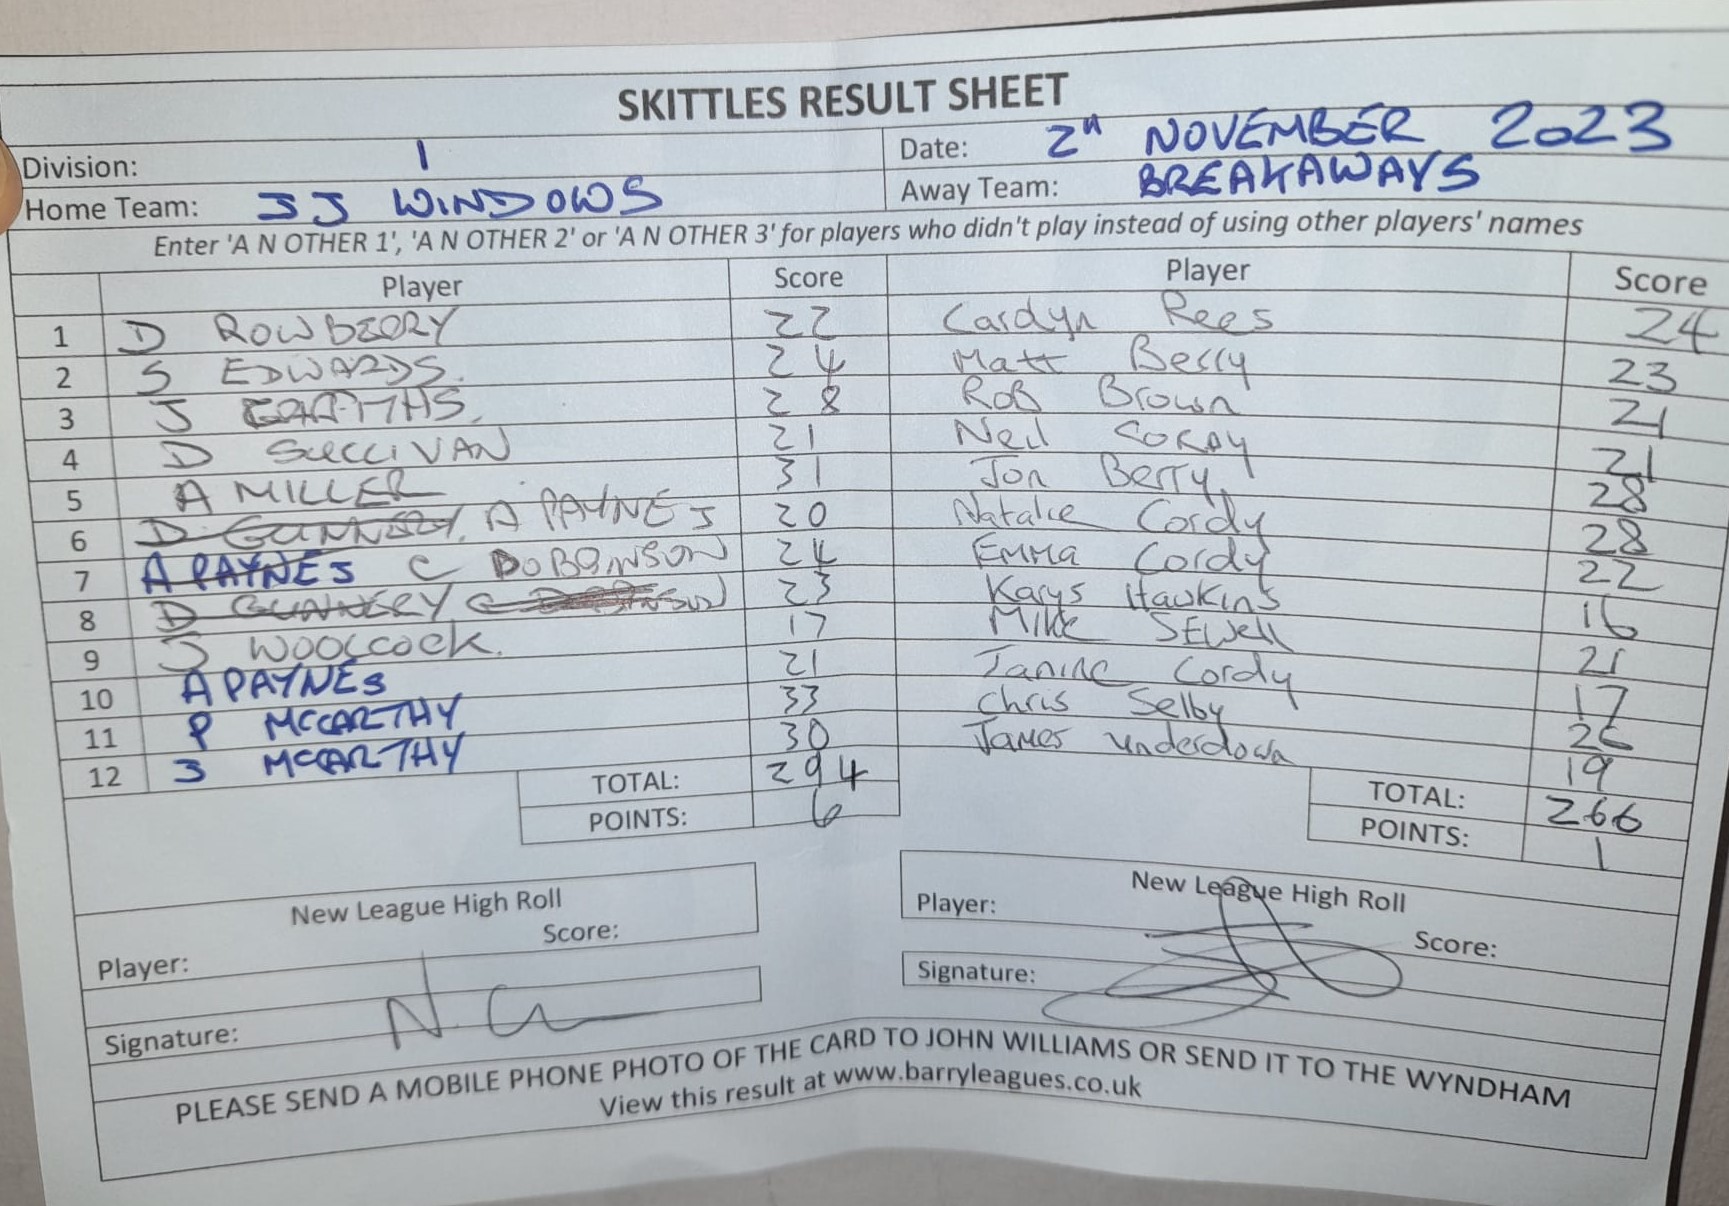 SKITTLES RESULT SHEET
Division: 1 Date: 2ⁿ NOVEMBER 2023
Home Team: JJ WINDOWS Away Team: BREAKAWAYS
Enter 'A N OTHER 1', 'A N OTHER 2' or 'A N OTHER 3' for players who didn't play instead of using other players' names
Player Score Player Score
1 D ROWBERRY 22 Carolyn Rees 24
2 S EDWARDS. 24 Matt Berry 23
3 J 28 Rob Brown 21
4 D SULLIVAN 21 Neil CORDY 21
5 A MILLER 31 Jon Berry 28
6 D GUNNERY. A PAYNE J 20 Natalie Cordy 28
7 A PAYNES C DOBBINSON 24 Emma Cordy 22
8 D GUNNERY 23 Karys Hawkins 16
9 J WOOLCOCK. 17 Mike SEWell 21
10 A PAYNES 21 Janine Cordy 17
11 P MCCARTHY 33 Chris Selby 26
12 J MCCARTHY 30 James underdown 19
TOTAL: 294 TOTAL: 266
POINTS: 6 POINTS: 1
New League High Roll New League High Roll
Player: Score: Player: Score:
Signature: Signature:
PLEASE SEND A MOBILE PHONE PHOTO OF THE CARD TO JOHN WILLIAMS OR SEND IT TO THE WYNDHAM
View this result at www.barryleagues.co.uk